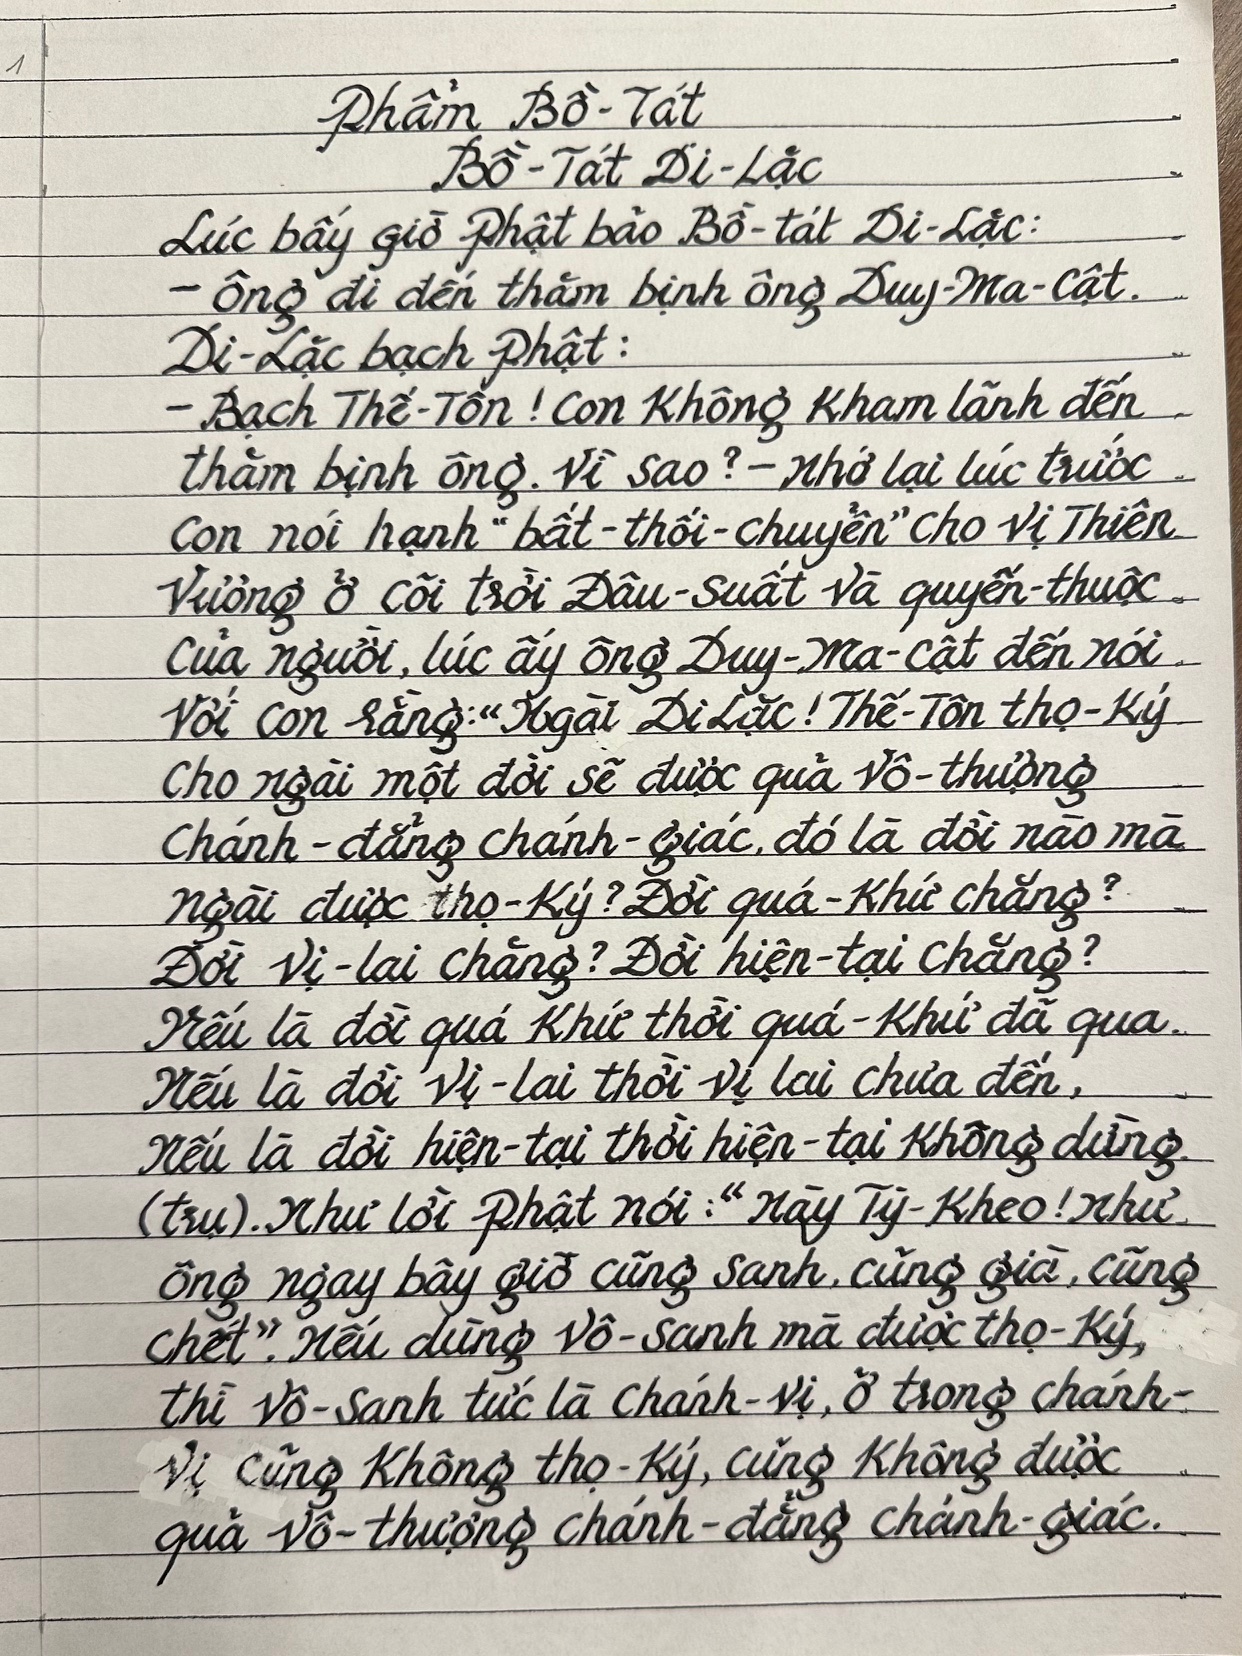 1
Phẩm Bồ-Tát
Bồ-Tát Di-Lặc
Lúc bấy giờ Phật bảo Bồ-tát Di-Lặc:
- Ông đi đến thăm bịnh ông Duy-Ma-Cật.
Di-Lặc bạch Phật:
- Bạch Thế-Tôn! Con Không Kham lãnh đến
thăm bịnh ông. Vì sao? - Nhớ lại lúc trước
Con nói hạnh "bất-thối-chuyển" Cho Vị Thiên
Vương ở Cõi trời Đâu-Suất Và quyến-thuộc
Của người, lúc ấy ông Duy-Ma-Cật đến nói
Với Con rằng: "Ngài Di Lặc! Thế-Tôn thọ-Ký
Cho ngài một đời sẽ được quả Vô-thượng
Chánh-đẳng chánh-giác, đó là đời nào mà
ngài được thọ-Ký? Đời quá-Khứ chăng?
Đời Vị-lai Chăng? Đời hiện-tại Chăng?
Nếu là đời quá Khứ thời quá-Khứ đã qua.
Nếu là đời Vị-lai thời Vị lai chưa đến,
Nếu là đời hiện-tại thời hiện-tại Không dừng
(trụ). Như lời Phật nói: "Này Tỳ-Kheo! Như
ông ngay bây giờ cũng Sanh, cũng già, cũng
Chết". Nếu dùng Vô-Sanh mà được thọ-Ký,
thì Vô-Sanh tức là Chánh-Vị, ở trong chánh-
Vị Cũng Không thọ-Ký, cũng Không được
quả Vô-thượng chánh-đẳng chánh-giác.